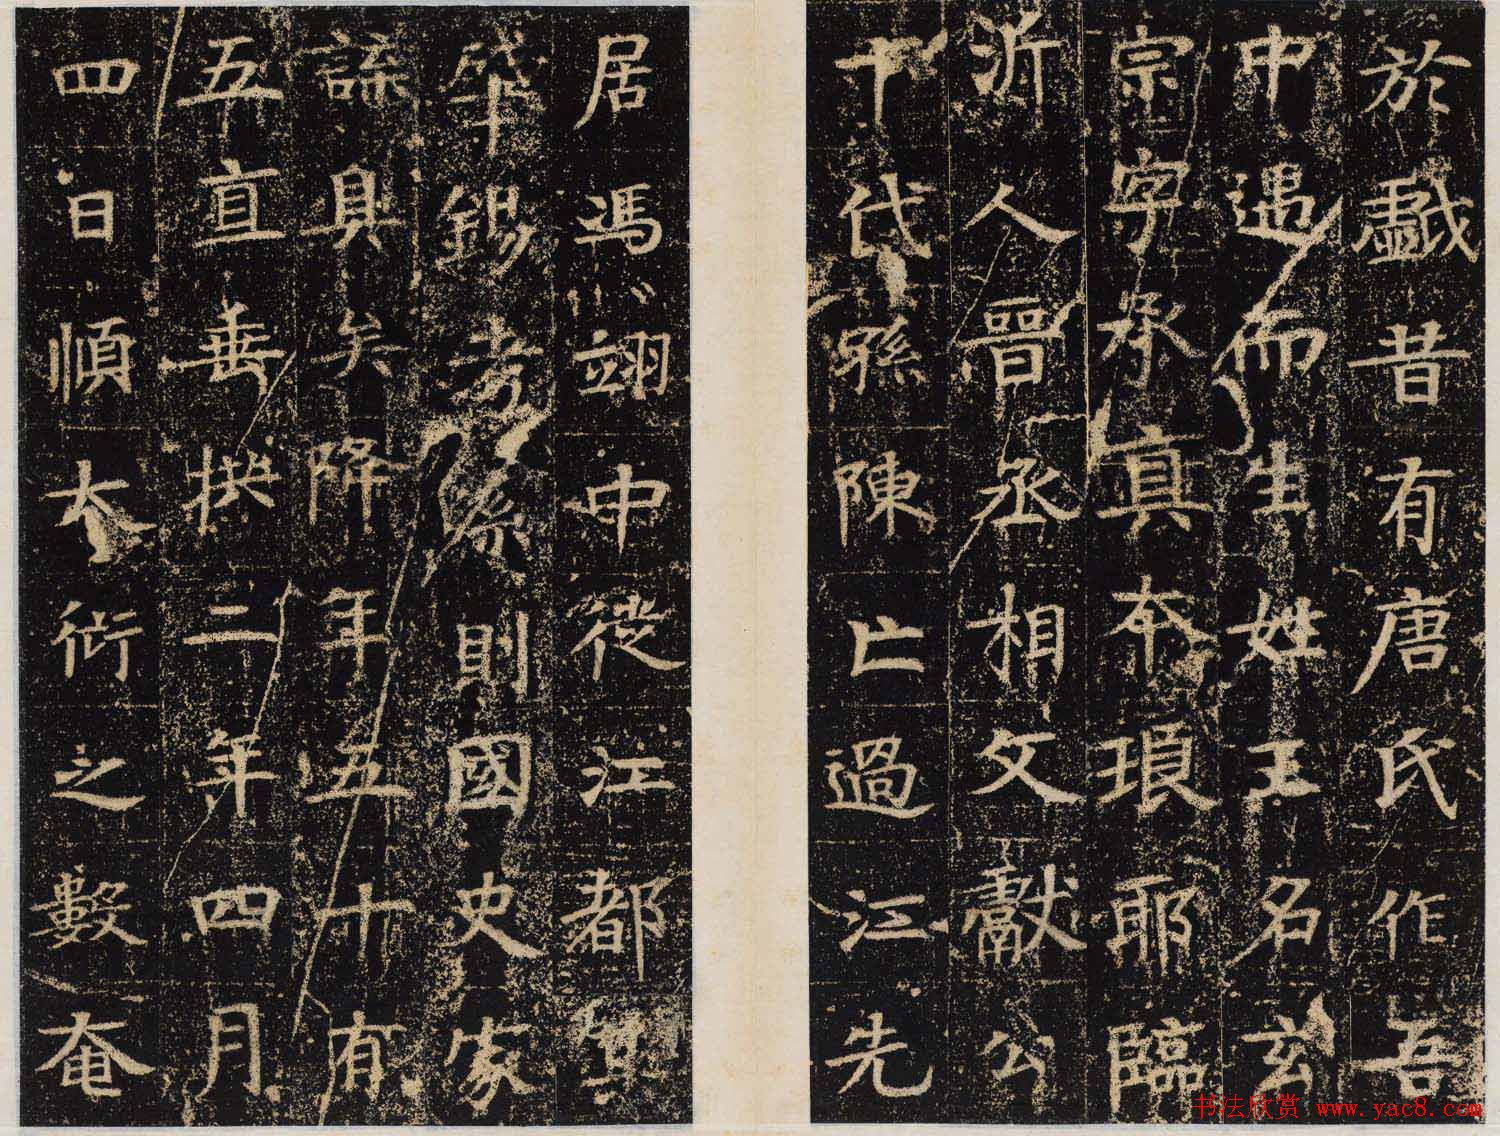 於戲昔有唐氏作吾
中遇而生姓王名玄
宗字承真夲琅耶臨
沂人晉丞相文獻公
十代孫陳亡過江先
居馮翊中徙江都其
肇錫考系則國史家
諜具矣降年五十有
五直垂拱二年四月
四日順大衍之數奄
书法欣赏 www.yac8.com